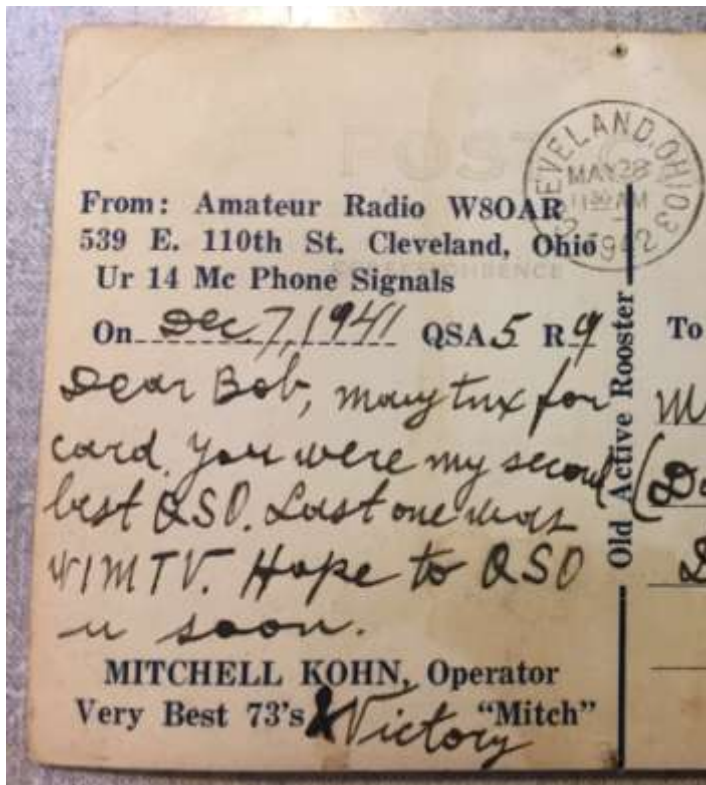 CLEVELAND, OHIO 3
MAY 28
AM
1942
POST
From: Amateur Radio W8OAR
539 E. 110th St. Cleveland, Ohio
Ur 14 Mc Phone Signals
On Dec. 7, 1941 QSA 5 R 9
Dear Bob, many tnx for
card. You were my second
last QSO. Last one was
W1MTV. Hope to QSO
u soon.
MITCHELL KOHN, Operator
Very Best 73's & Victory "Mitch"
Old Active Rooster
To
M
(Do
D